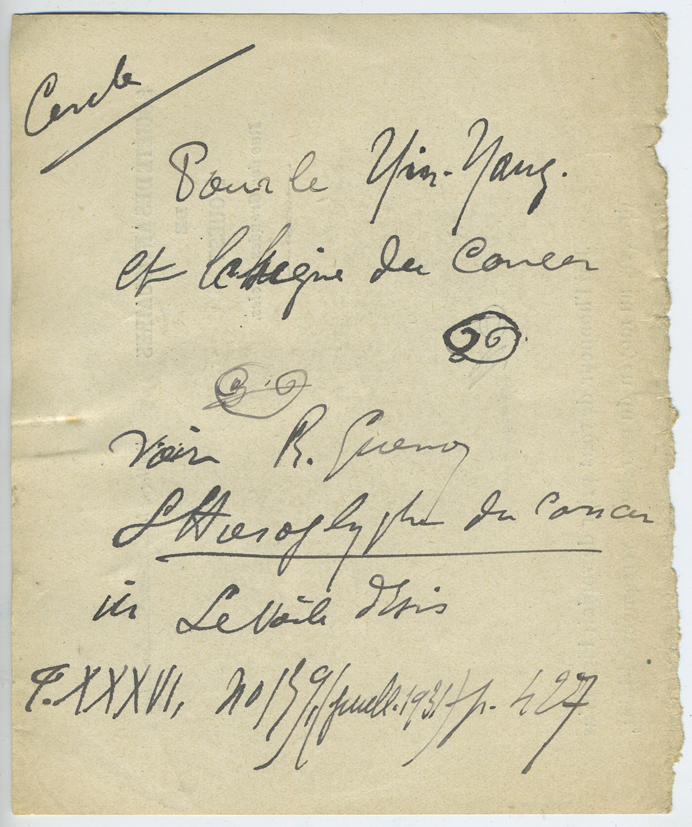 Cercle
Pour le Yin-Yang.
et le signe du Cancer
voir R. Guenon
L'Hieroglyphe du Cancer
in Le Voile d'Isis
T. XXXVI, no 139, (juill. 1931) p. 427